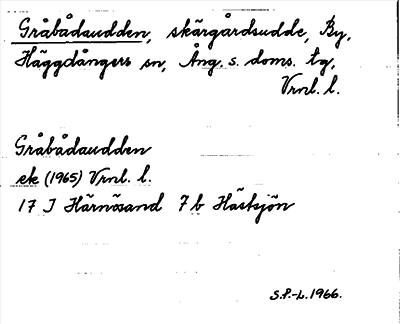 Gråbådaudden, skärgårdsudde, By,
Häggdångers sn, Ång. s. doms. tg,
Vrnl. l.
Gråbådaudden
ek (1965) Vrnl. l.
17 J Härnösand 7 b Hästsjön
S.P.-L. 1966.